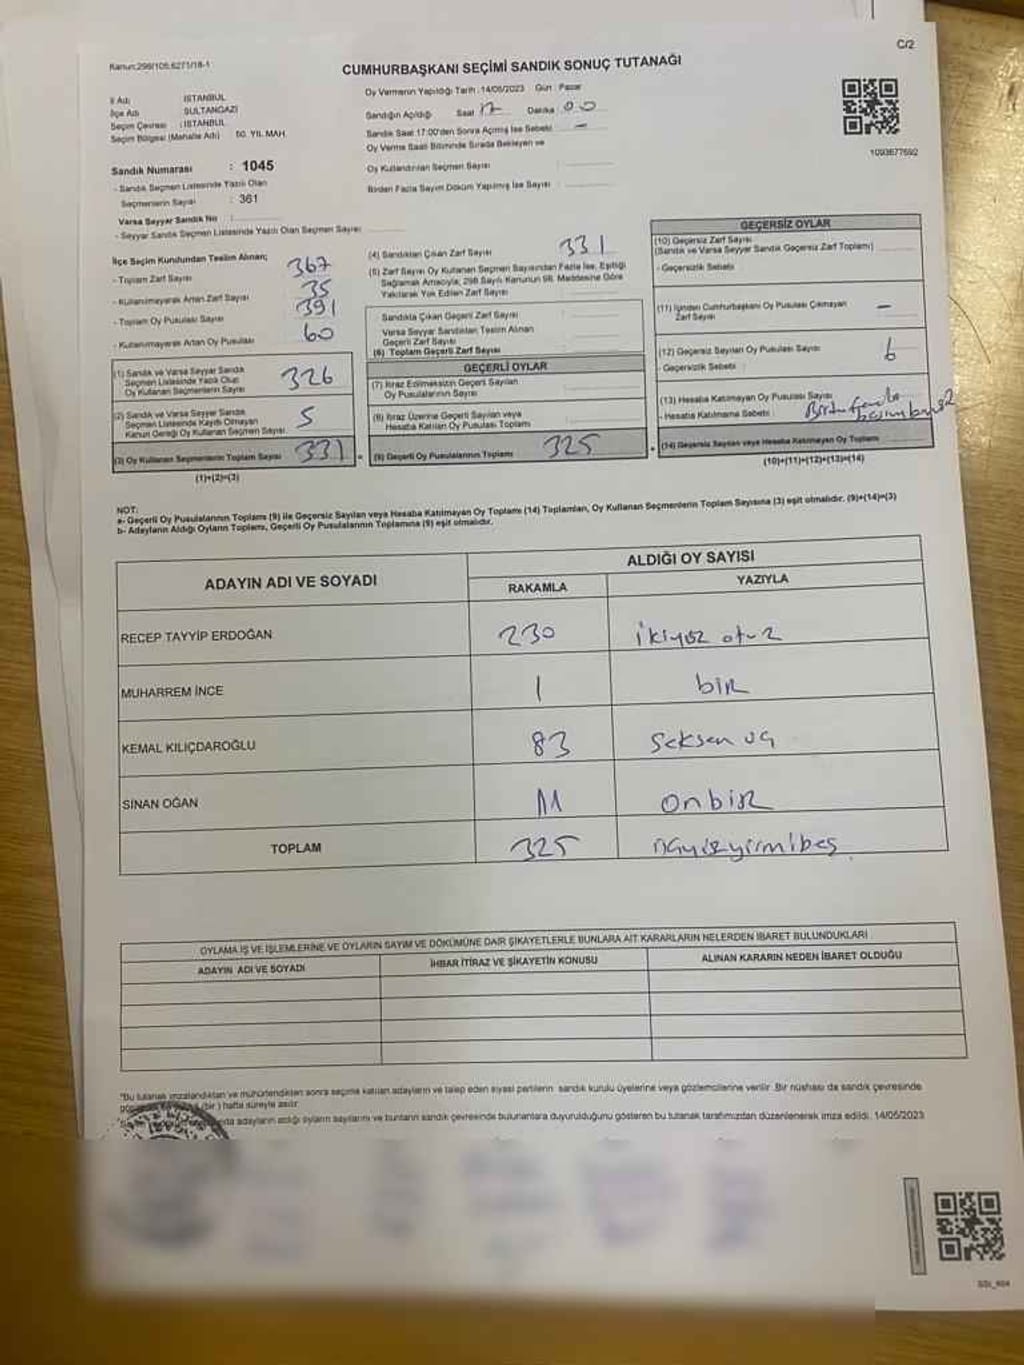 C/2
Kanun:298/105.6271/18-1
CUMHURBAŞKANI SEÇİMİ SANDIK SONUÇ TUTANAĞI
İl Adı : İSTANBUL
İlçe Adı : SULTANGAZİ
Seçim Çevresi : İSTANBUL
Seçim Bölgesi (Mahalle Adı) 50. YIL MAH.
Sandık Numarası : 1045
- Sandık Seçmen Listesinde Yazılı Olan
Seçmenlerin Sayısı : 361
Varsa Seyyar Sandık No :
- Seyyar Sandık Seçmen Listesinde Yazılı Olan Seçmen Sayısı
Oy Vermenin Yapıldığı Tarih :14/05/2023 Gün : Pazar
Sandığın Açıldığı Saat 17 Dakika : 00
Sandık Saat 17:00'den Sonra Açılmış İse Sebebi : -
Oy Verme Saati Bitiminde Sırada Bekleyen ve
Oy Kullandırılan Seçmen Sayısı
Birden Fazla Sayım Döküm Yapılmış İse Sayısı
1093677692
İlçe Seçim Kurulundan Teslim Alınan;
- Toplam Zarf Sayısı 367
- Kullanılmayarak Artan Zarf Sayısı 35
- Toplam Oy Pusulası Sayısı 391
- Kullanılmayarak Artan Oy Pusulası 60
(1) Sandık ve Varsa Seyyar Sandık
Seçmen Listesinde Yazılı Olup
Oy Kullanan Seçmenlerin Sayısı 326
(2) Sandık ve Varsa Seyyar Sandık
Seçmen Listesinde Kaydı Olmayan
Kanun Gereği Oy Kullanan Seçmen Sayısı 5
(3) Oy Kullanan Seçmenlerin Toplam Sayısı 331
(1)+(2)=(3)
(4) Sandıktan Çıkan Zarf Sayısı 331
(5) Zarf Sayısı Oy Kullanan Seçmen Sayısından Fazla İse, Eşitliği
Sağlamak Amacıyla; 298 Sayılı Kanunun 98. Maddesine Göre
Yakılarak Yok Edilen Zarf Sayısı
Sandıkta Çıkan Geçerli Zarf Sayısı
Varsa Seyyar Sandıktan Teslim Alınan
Geçerli Zarf Sayısı
(6) Toplam Geçerli Zarf Sayısı
GEÇERLİ OYLAR
(7) İtiraz Edilmeksizin Geçerli Sayılan
Oy Pusulalarının Sayısı
(8) İtiraz Üzerine Geçerli Sayılan veya
Hesaba Katılan Oy Pusulası Toplamı
(9) Geçerli Oy Pusulalarının Toplamı 325
GEÇERSİZ OYLAR
(10) Geçersiz Zarf Sayısı
(Sandık ve Varsa Seyyar Sandık Geçersiz Zarf Toplamı)
- Geçersizlik Sebebi
(11) İçinden Cumhurbaşkanı Oy Pusulası Çıkmayan
Zarf Sayısı -
(12) Geçersiz Sayılan Oy Pusulası Sayısı 6
- Geçersizlik Sebebi :
(13) Hesaba Katılmayan Oy Pusulası Sayısı
- Hesaba Katılmama Sebebi :
(14) Geçersiz Sayılan veya Hesaba Katılmayan Oy Toplamı
(10)+(11)+(12)+(13)=(14)
NOT:
a- Geçerli Oy Pusulalarının Toplamı (9) ile Geçersiz Sayılan veya Hesaba Katılmayan Oy Toplamı (14) Toplamları, Oy Kullanan Seçmenlerin Toplam Sayısına (3) eşit olmalıdır. (9)+(14)=(3)
b- Adayların Aldığı Oyların Toplamı, Geçerli Oy Pusulalarının Toplamına (9) eşit olmalıdır.
ADAYIN ADI VE SOYADI
ALDIĞI OY SAYISI
RAKAMLA YAZIYLA
RECEP TAYYİP ERDOĞAN 230 ikiyüz otuz
MUHARREM İNCE 1 bir
KEMAL KILIÇDAROĞLU 83 Seksen üç
SİNAN OĞAN 11 onbir
TOPLAM 325 üçyüzyirmibeş
OYLAMA İŞ VE İŞLEMLERİNE VE OYLARIN SAYIM VE DÖKÜMÜNE DAİR ŞİKAYETLERLE BUNLARA AİT KARARLARIN NELERDEN İBARET BULUNDUKLARI
ADAYIN ADI VE SOYADI İHBAR İTİRAZ VE ŞİKAYETİN KONUSU ALINAN KARARIN NEDEN İBARET OLDUĞU
"Bu tutanak imzalandıktan ve mühürlendikten sonra seçime katılan adayların ve talep eden siyasi partilerin sandık kurulu üyelerine veya gözlemcilerine verilir. Bir nüshası da sandık çevresinde
(bir) hafta süreyle asılır.
adayların aldığı oyların sayılarını ve bunların sandık çevresinde bulunanlara duyurulduğunu gösteren bu tutanak tarafımızdan düzenlenerek imza edildi. 14/05/2023